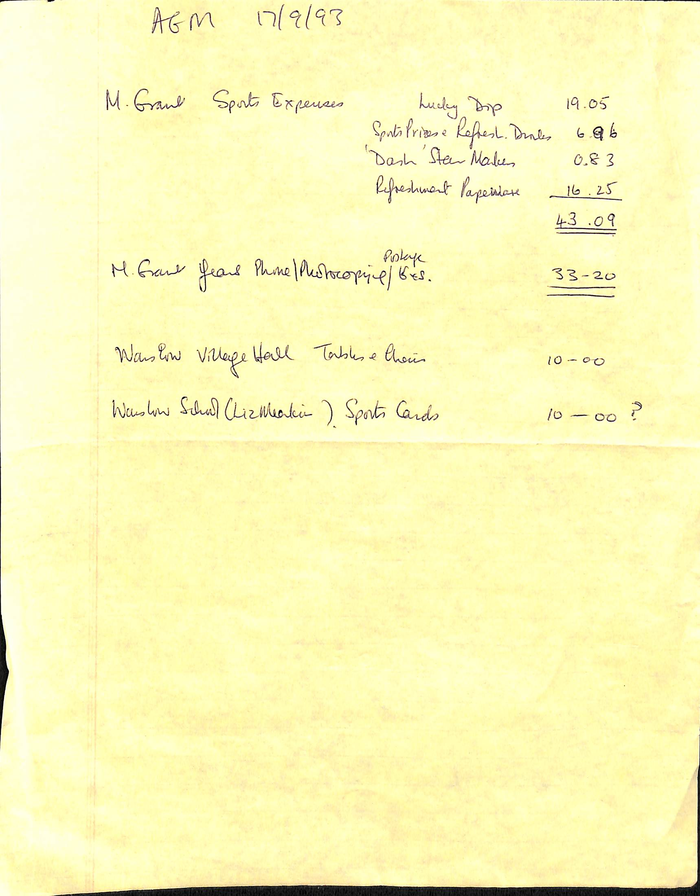 AGM 17/9/93
M. Grant Sports Expenses Lucky Dip 19.05
Sports Prizes & Refresh. Drinks 6.96
'Dash' Stain Maker 0.83
Refreshment Paperware 16.25
43.09
Postage
M. Grant Years Phone/Photocopying/ 33-20
Winslow Village Hall Tables & Chairs 10-00
Winslow School (Liz Meakin). Sports Cards 10-00 ?